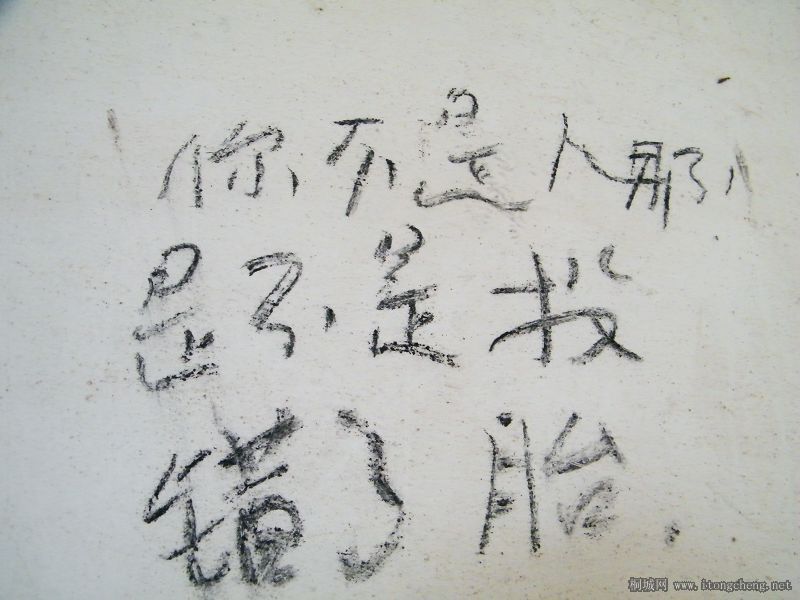 你不是人那
是不是投
错了胎.
桐城网 www.itongcheng.net